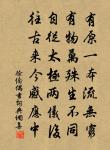 有原一本流無窮
有物萬殊生不同
自從太極兩儀後
往古來今感應中
徐僑偶書詞典網集